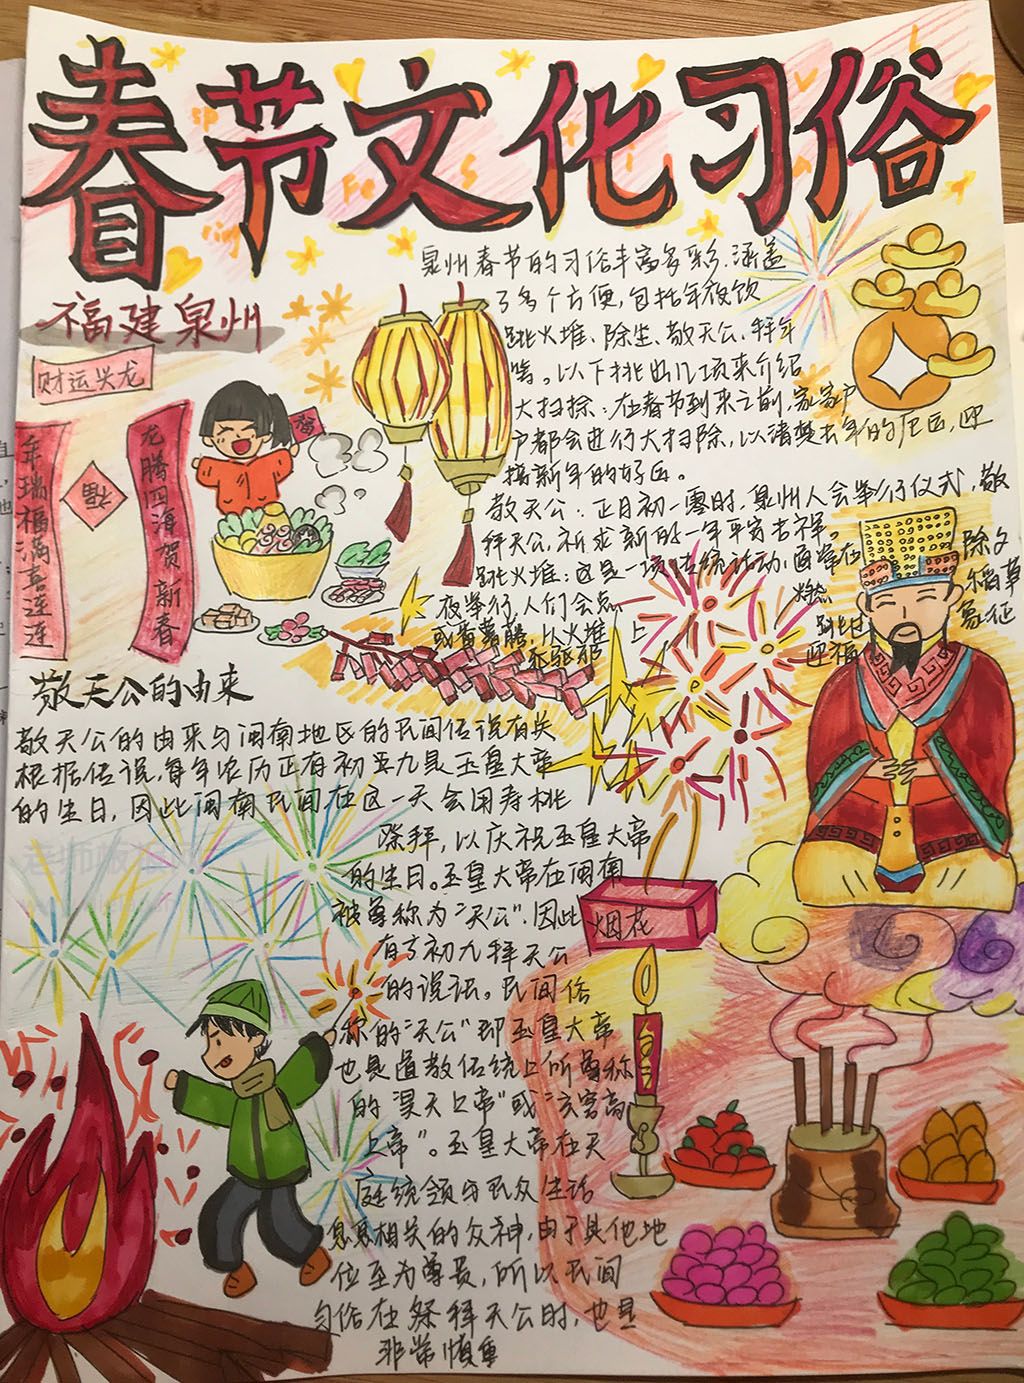 春节文化习俗
福建泉州
财运兴龙
年瑞福满喜连连
福
龙腾四海贺新春
春
泉州春节的习俗丰富多彩,涵盖
了多个方便,包括年夜饮
跳火堆、除尘、敬天公、拜年
等。以下挑出几项来介绍
大扫除:在春节到来之前,家家户
户都会进行大扫除,以清楚去年的厄运,迎
接新年的好运。
敬天公:正月初一零时,泉州人会举行仪式,敬
拜天公,祈求新的一年平安吉祥。
跳火堆:这是一项传统活动,通常在 除夕
夜举行,人们会点 燃 稻草
或番薯藤,从火堆上 跳过 象征
驱邪 迎福
敬天公的由来
敬天公的由来与闽南地区的民间传说有关
根据传说,每年农历正有初九是玉皇大帝
的生日,因此闽南民间在这一天会用寿桃
祭拜,以庆祝玉皇大帝
的生日。玉皇大帝在闽南
被尊称为“天公”,因此
有了初九拜天公
的说法。民间俗
称的“天公”即玉皇大帝
也是道教传统上所尊称
的“昊天上帝”或“玄穹高
上帝”。玉皇大帝在天
庭统领与民众生活
息息相关的众神,由于其他地
位至为尊贵,所以民间
习俗在祭拜天公时,也是
非常慎重
烟花